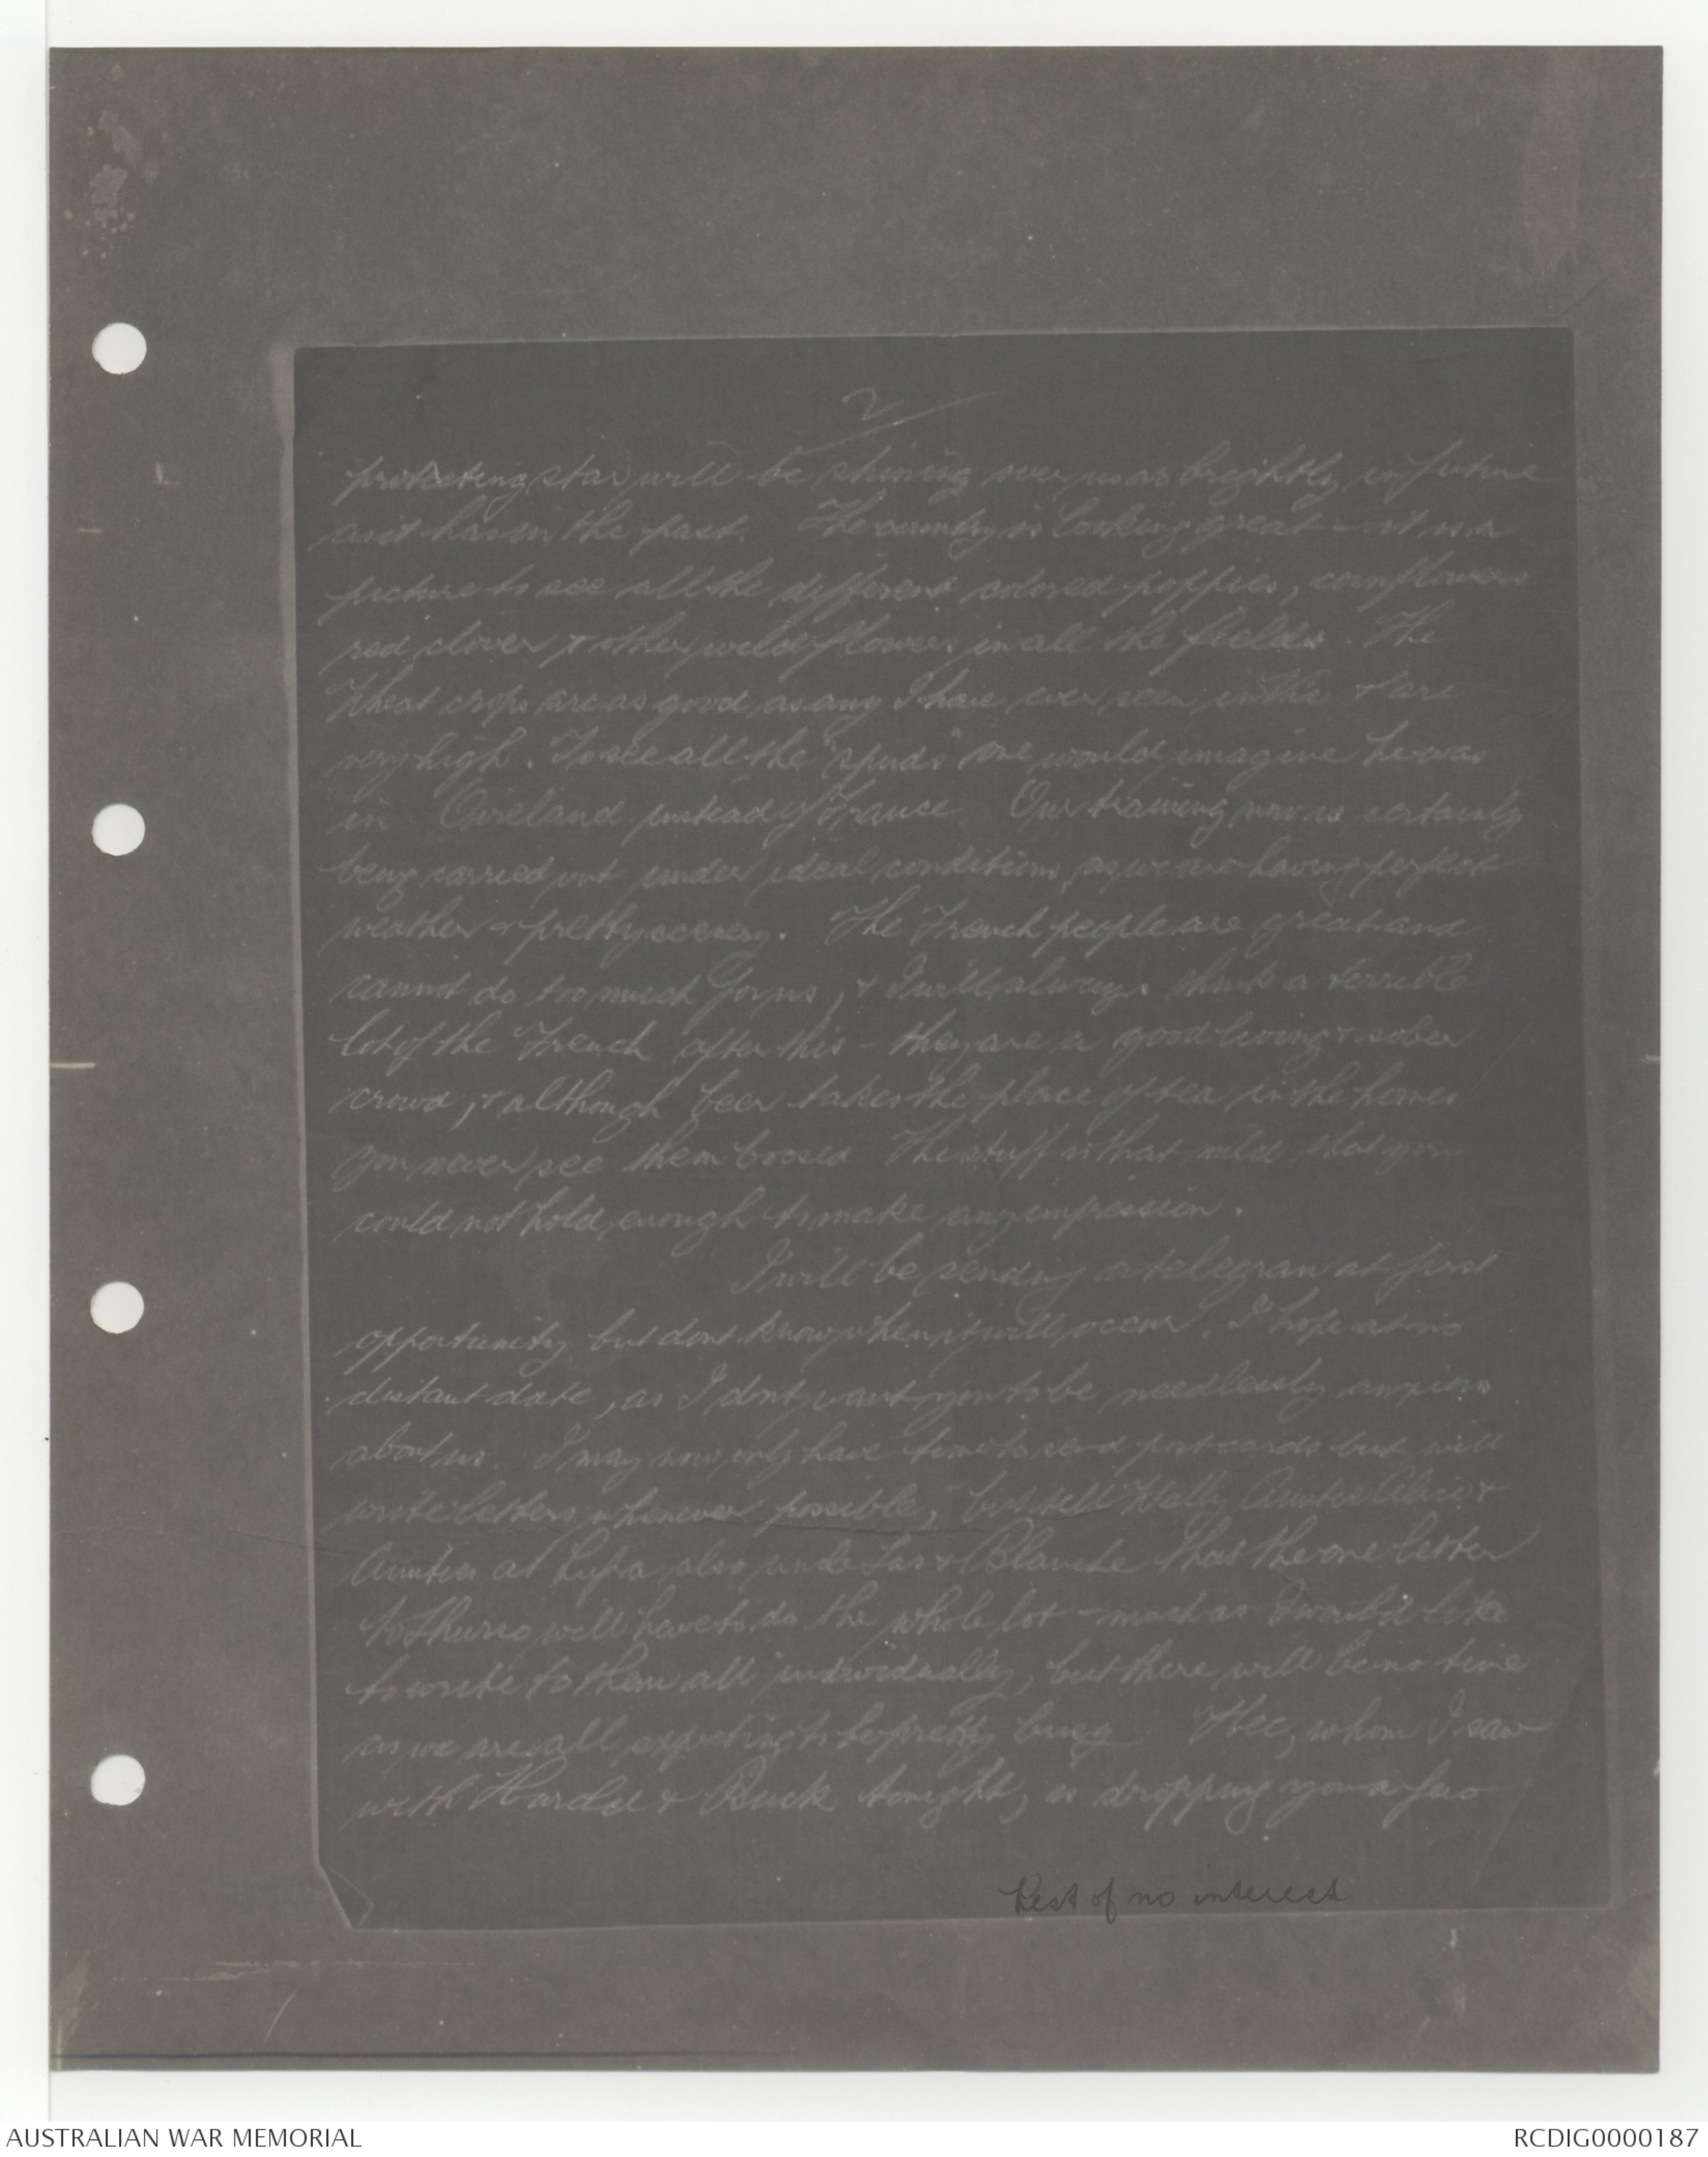 2/
protecting star will be shining over us as brightly in future
as it has in the past. The country is looking great - it is a
picture to see all the different colored poppies, cornflowers
red clover & other wild flowers in all the fields. The
Wheat crops are as good as any I have ever seen in the & are
very high. To see all the "spuds" one would imagine he was
in Oireland instead of France Our training now is certainly
being carried out under ideal conditions, as we are having perfect
weather & pretty scenery. The French people are great and
cannot do too much for us, & I will always think a terrible
lot of the French after this - they are a good living & sober
crowd, & although beer takes the place of tea in the homes
you never see them boosed The stuff is that mild that you
could not hold enough to make any impression.
I will be sending a telegram at first
opportunity but dont know when it will occur. I hope at no
distant date, as I dont want you to be needlessly anxious
about us. I may now only have time to send post cards but will
write letters whenever possible, but tell Wally Auntie Alice &
Aunties at also uncle & Blanche that the one letter
to Thurso will have to do the whole lot - much as I would like
to write to them all individually, but there will be no time
as we are all expecting to be pretty busy Alec, whom I saw
with & Buck tonight, is dropping you a few
Rest of no interest
AUSTRALIAN WAR MEMORIAL
RCDIG0000187